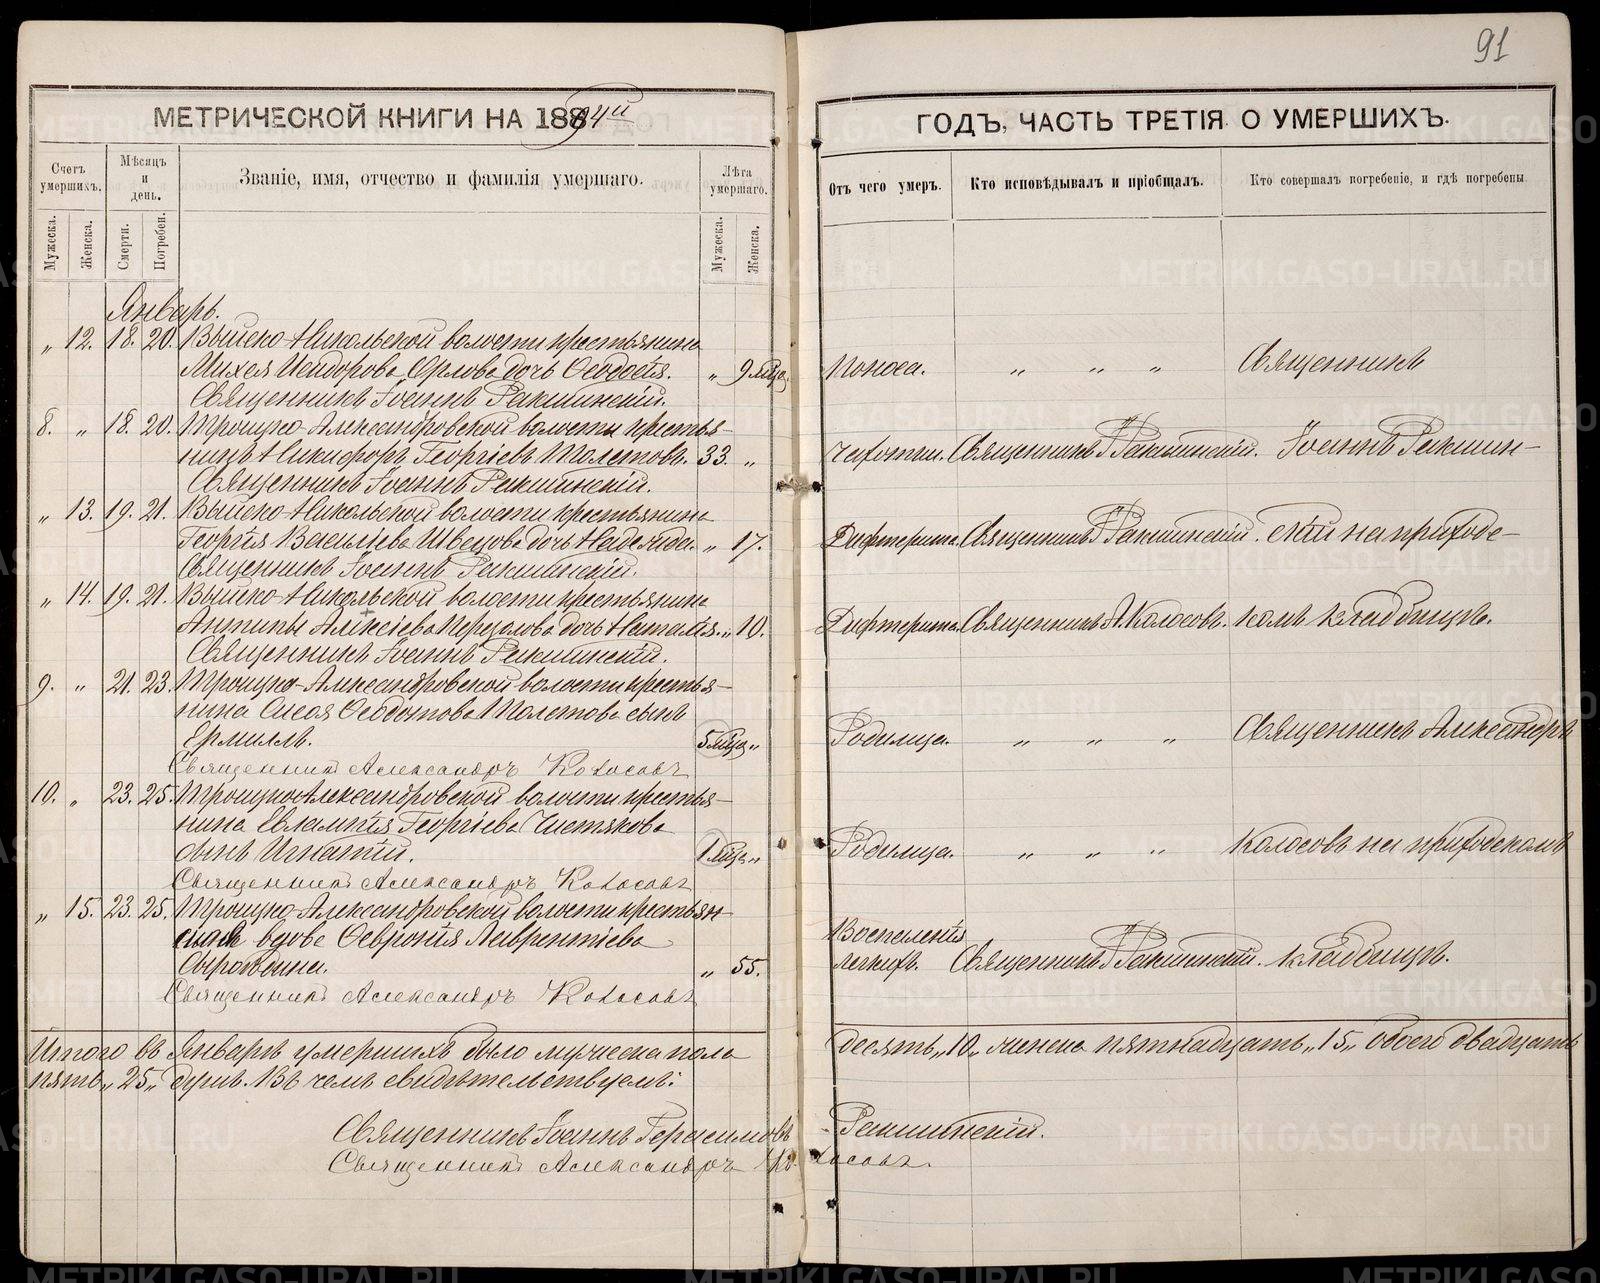 91
МЕТРИЧЕСКОЙ КНИГИ НА 1894й
ГОДЪ, ЧАСТЬ ТРЕТІЯ О УМЕРШИХЪ.
Счетъ умершихъ.
Мѣсяцъ и день.
Званіе, имя, отчество и фамилія умершаго.
Лѣта умершаго.
Отъ чего умеръ.
Кто исповѣдывалъ и пріобщалъ.
Кто совершалъ погребеніе, и гдѣ погребены
Мужеска.
Женска.
Смерти.
Погребен.
Мужеска.
Женска.
Январь.
„ 12. 18. 20. Выйско-Никольской волости крестьянина
Михея Исидорова Орлова дочь Ѳеодосія. „ 9 мѣс. Поноса. „ „ „ Священникъ
Священникъ Іоаннъ Ракшинскій.
8. „ 18. 20. Троицко-Александровской волости крестья-
нинъ Никифоръ Георгіевъ Толстовъ. 33. „ Чахотки. Священникъ І. Ракшинскій. Іоаннъ Ракшин-
Священникъ Іоаннъ Ракшинскій.
„ 13. 19. 21. Выйско-Никольской волости крестьянина
Георгія Васильева Швецова дочь Надежда. „ 17. Дифтерита. Священникъ І. Ракшинскій. скій на приходс-
Священникъ Іоаннъ Ракшинскій.
„ 14. 19. 21. Выйско-Никольской волости крестьянина
Антипы Алексіева дочь Наталія. „ 10. Дифтерита. Священникъ А. Колосовъ. комъ кладбищѣ.
Священникъ Іоаннъ Ракшинскій.
9. „ 21. 23. Троицко-Александровской волости крестья-
нина Сысоя Ѳеодотова Толстова сынъ
Ермиллъ. 5 мѣс. „ Родимца. „ „ „ Священникъ Александръ
Священникъ Александръ Колосовъ
10. „ 23. 25. Троицко-Александровской волости крестья-
нина Евлампія Георгіева Чистякова
сынъ Игнатій. 1 мѣс. „ Родимца. „ „ „ Колосовъ на приходскомъ
Священникъ Александръ Колосовъ
„ 15. 23. 25. Троицко-Александровской волости крестьян-
ская вдова Ѳевронія Лаврентіева
Сыропятова. „ 55. Воспаленія легкихъ. Священникъ І. Ракшинскій. кладбищѣ.
Священникъ Александръ Колосовъ
Итого въ Январѣ умершихъ было мужеска пола десять „10„ женска пятнадцать „15„ обоего двадцать
пять „25„ душъ. Въ чемъ свидѣтельствуемъ:
Священникъ Іоаннъ Герасимовъ Ракшинскій.
Священникъ Александръ Колосовъ.
METRIKI.GASO-URAL.RU